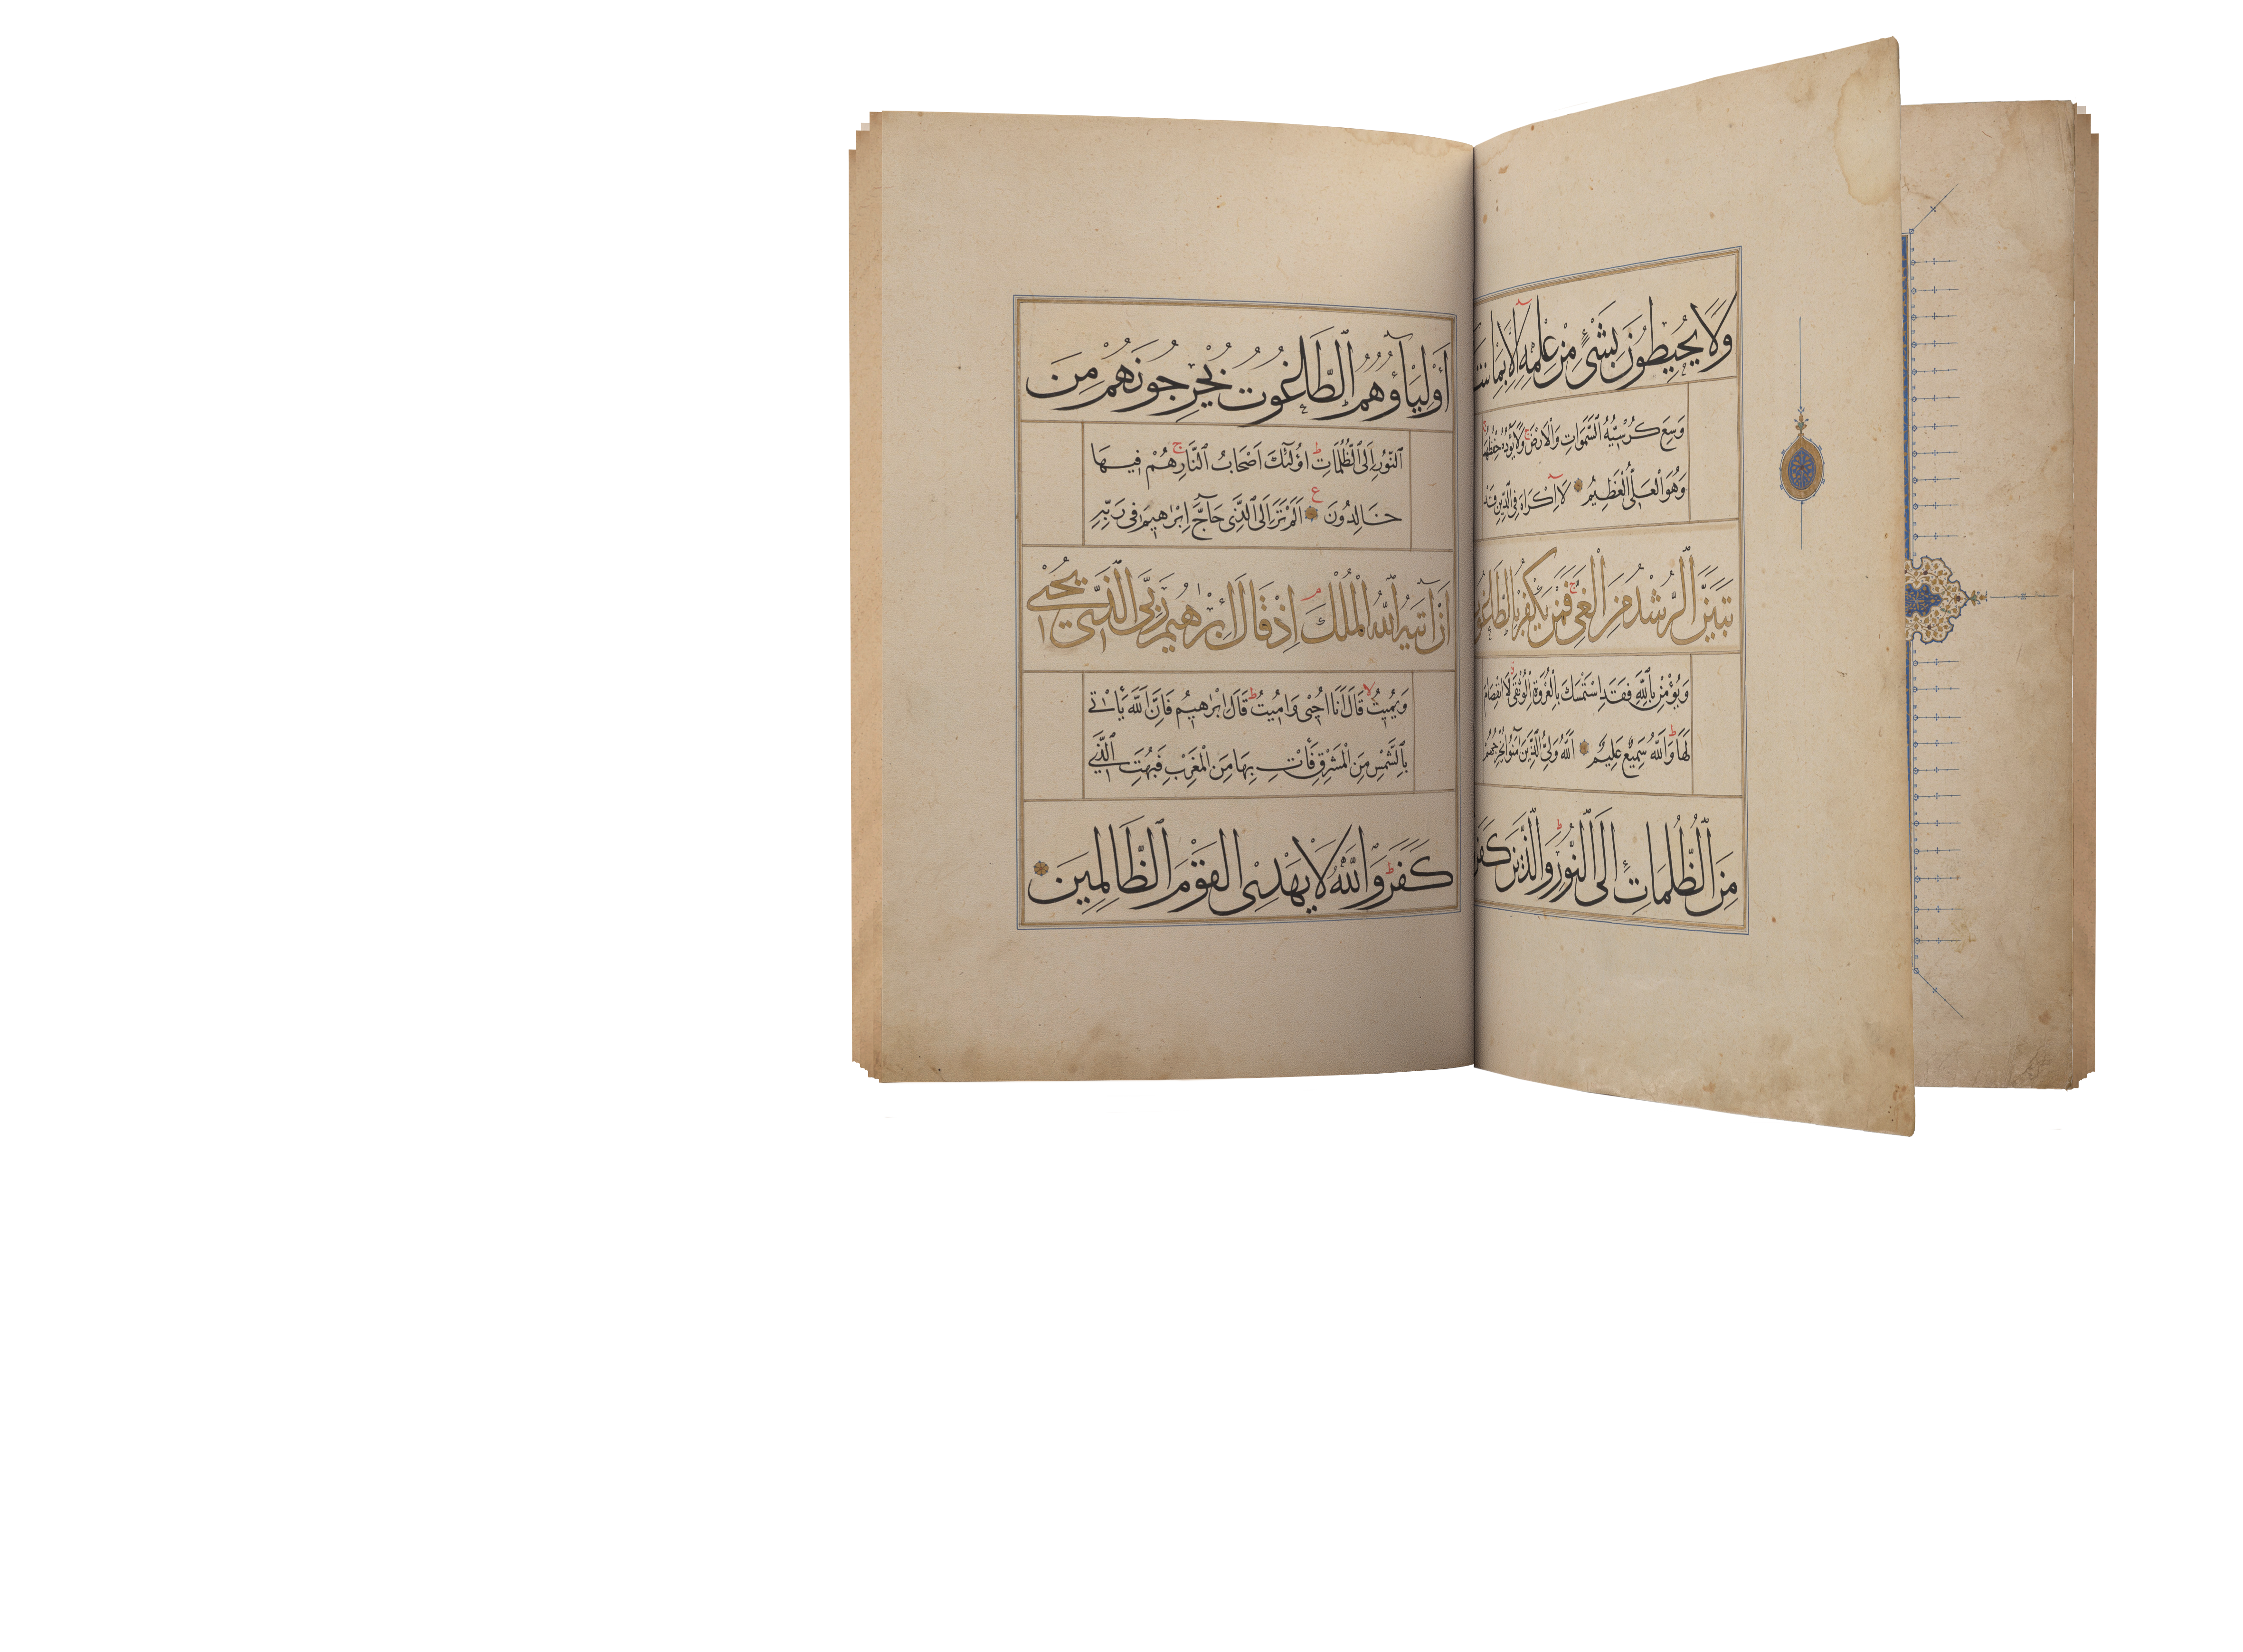 وَلَا يُحِيطُونَ بِشَىْءٍ مِنْ عِلْمِهِ إِلَّا بِمَا
وَسِعَ كُرْسِيُّهُ السَّمَوَاتِ وَالْاَرْضَ ج وَلَا يَؤُدُهُ حِفْظُهُمَا
وَهُوَ الْعَلِىُّ الْعَظِيمُ لَا اِكْرَاهَ فِى الدِّينِ قَدْ
تَبَيَّنَ الرُّشْدُ مِنَ الْغَىِّ ج فَمَنْ يَكْفُرْ بِالطَّاغُوتِ
وَيُؤْمِنْ بِاللّٰهِ فَقَدِ اسْتَمْسَكَ بِالْعُرْوَةِ الْوُثْقٰى لَا انْفِصَامَ
لَهَا ط وَاللّٰهُ سَمِيعٌ عَلِيمٌ اَللّٰهُ وَلِىُّ الَّذِينَ آمَنُوا يُخْرِجُهُمْ
مِنَ الظُّلُمَاتِ اِلَى النُّورِ ط وَالَّذِينَ كَفَرُوا
أَوْلِيَآؤُهُمُ الطَّاغُوتُ يُخْرِجُونَهُمْ مِنَ
النُّورِ اِلَى الظُّلُمَاتِ ط اُولٰئِكَ اَصْحَابُ النَّارِ ج هُمْ فِيهَا
خَالِدُونَ ع اَلَمْ تَرَ اِلَى الَّذِى حَآجَّ اِبْرٰهِيمَ فِى رَبِّهِ
أَنْ آتٰيهُ اللّٰهُ الْمُلْكَ م إِذْ قَالَ إِبْرٰهِيمُ رَبِّىَ الَّذِى يُحْيِى
وَيُمِيتُ لا قَالَ اَنَا اُحْيِى وَاُمِيتُ ط قَالَ اِبْرٰهِيمُ فَاِنَّ اللّٰهَ يَأْتِى
بِالشَّمْسِ مِنَ الْمَشْرِقِ فَأْتِ بِهَا مِنَ الْمَغْرِبِ فَبُهِتَ الَّذِى
كَفَرَ ط وَاللّٰهُ لَا يَهْدِى الْقَوْمَ الظَّالِمِينَ